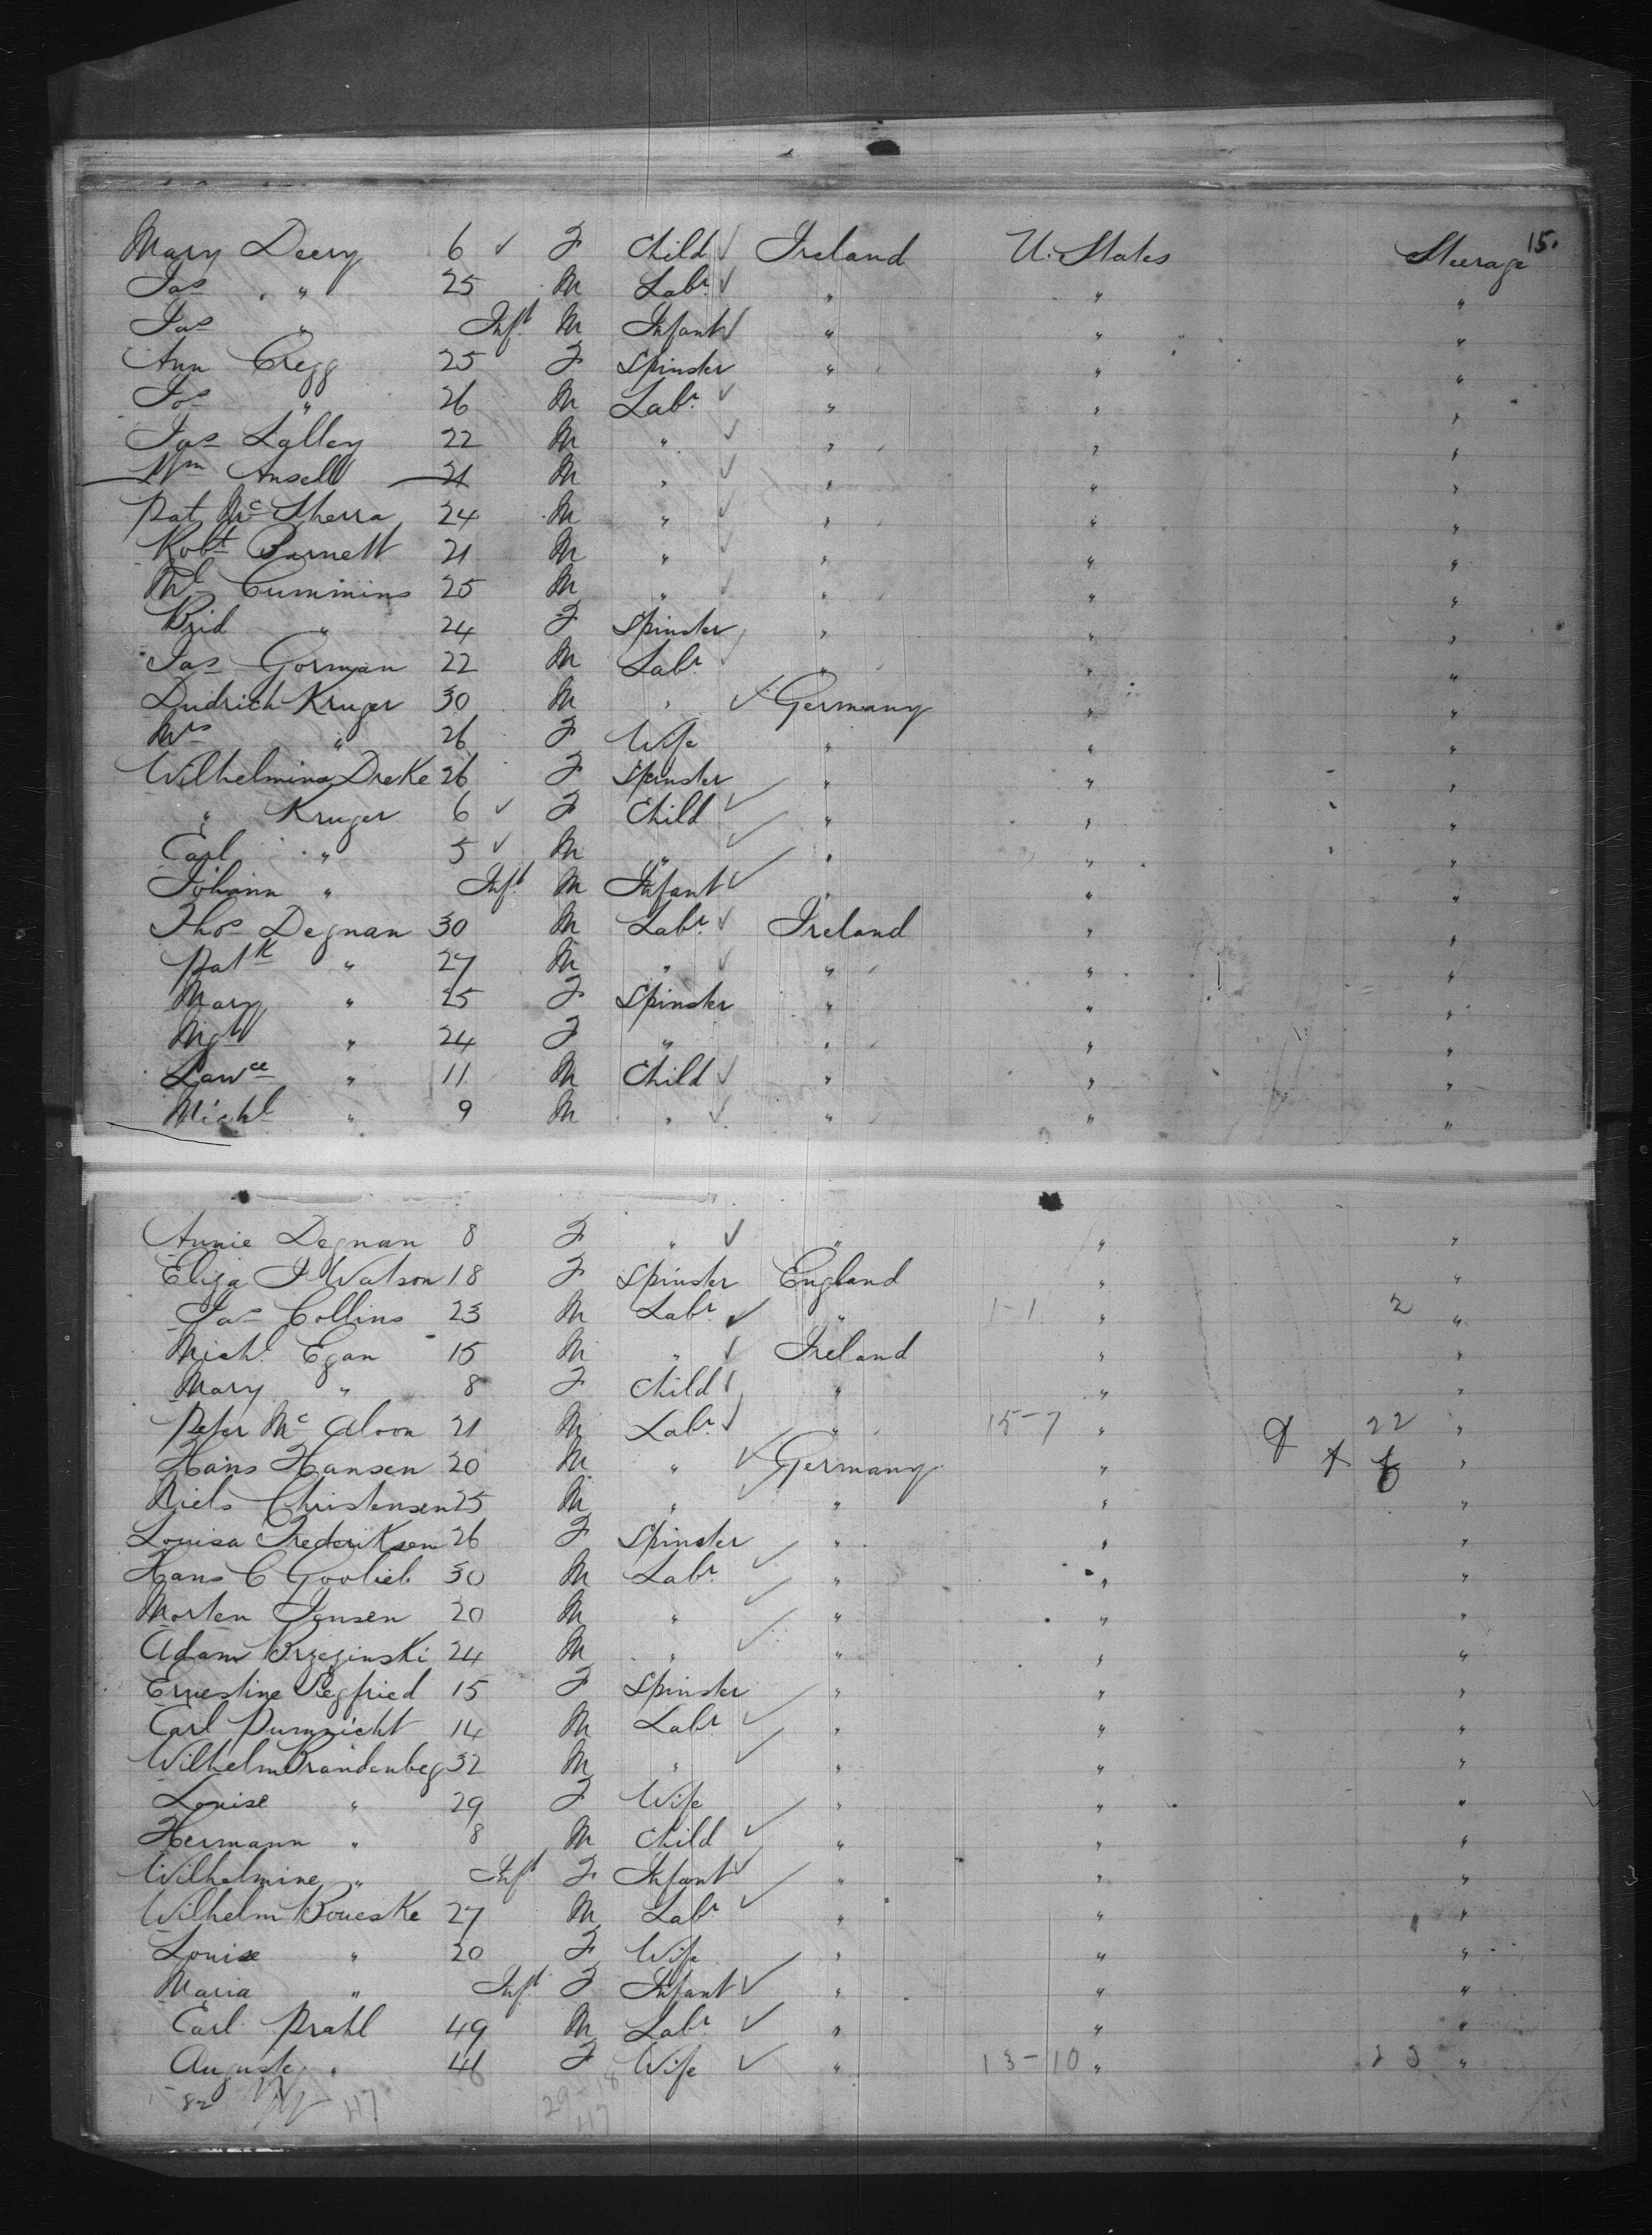 15.
Mary Deery 6 ✓ F Child ✓ Ireland U. States Steerage
Jas " 25 M Labr ✓ " " "
Jas " Inft M Infant ✓ " " "
Ann Cregg 25 F Spinster " " "
Jos " 26 M Labr ✓ " " "
Jas Lalley 22 M " ✓ " " "
Wm Ansell 21 M " ✓ " " "
Pat McSherra 24 M " ✓ " " "
Robt Barnett 21 M " ✓ " " "
Ml Cummins 25 M " ✓ " " "
Brid " 24 F Spinster " " "
Jas Gorman 22 M Labr ✓ " " "
Dudrich Kruger 30 M " ✓ Germany " "
Mrs " 26 F Wife " " "
Wilhelmina Dreke 26 F Spinster " " "
" Kruger 6 ✓ F Child ✓ " " "
Carl " 5 ✓ M " ✓ " " "
Johann " Inft M Infant ✓ " " "
Thos Degnan 30 M Labr ✓ Ireland " "
Patk " 27 M " ✓ " " "
Mary " 25 F Spinster " " "
Mgt " 24 F " " " "
Lawce " 11 M Child ✓ " " "
Michl " 9 M " ✓ " " "
Annie Degnan 8 F " ✓ " " "
Eliza J Watson 18 F Spinster England " "
Jas Collins 23 M Labr ✓ " 1-1 " 2 "
Michl Egan 15 M " ✓ Ireland " "
Mary " 8 F Child ✓ " " "
Peter Mc Aloon 21 M Labr ✓ " 15-7 " 22 "
Hans Hansen 20 M " ✓ Germany " "
Niels Christensen 25 M " ✓ " " "
Louisa Frederiksen 26 F Spinster " " "
Hans C Goolieb 30 M Labr ✓ " " "
Morten Jensen 20 M " ✓ " " "
Adam Brzezinski 24 M " ✓ " " "
Ernestine Siegfried 15 F Spinster " " "
Carl Dumzicht 14 M Labr ✓ " " "
Wilhelm Brandenbeg 32 M " ✓ " " "
Louise " 29 F Wife " " "
Hermann " 8 M Child ✓ " " "
Wilhelmine " Inft F Infant ✓ " " "
Wilhelm Boueske 27 M Labr ✓ " " "
Louise " 20 F Wife " " "
Maria " Inft F Infant ✓ " " "
Carl Prahl 49 M Labr ✓ " " "
Auguste " 46 F Wife ✓ " 13-10 " 23 "
82 47 29-18
47